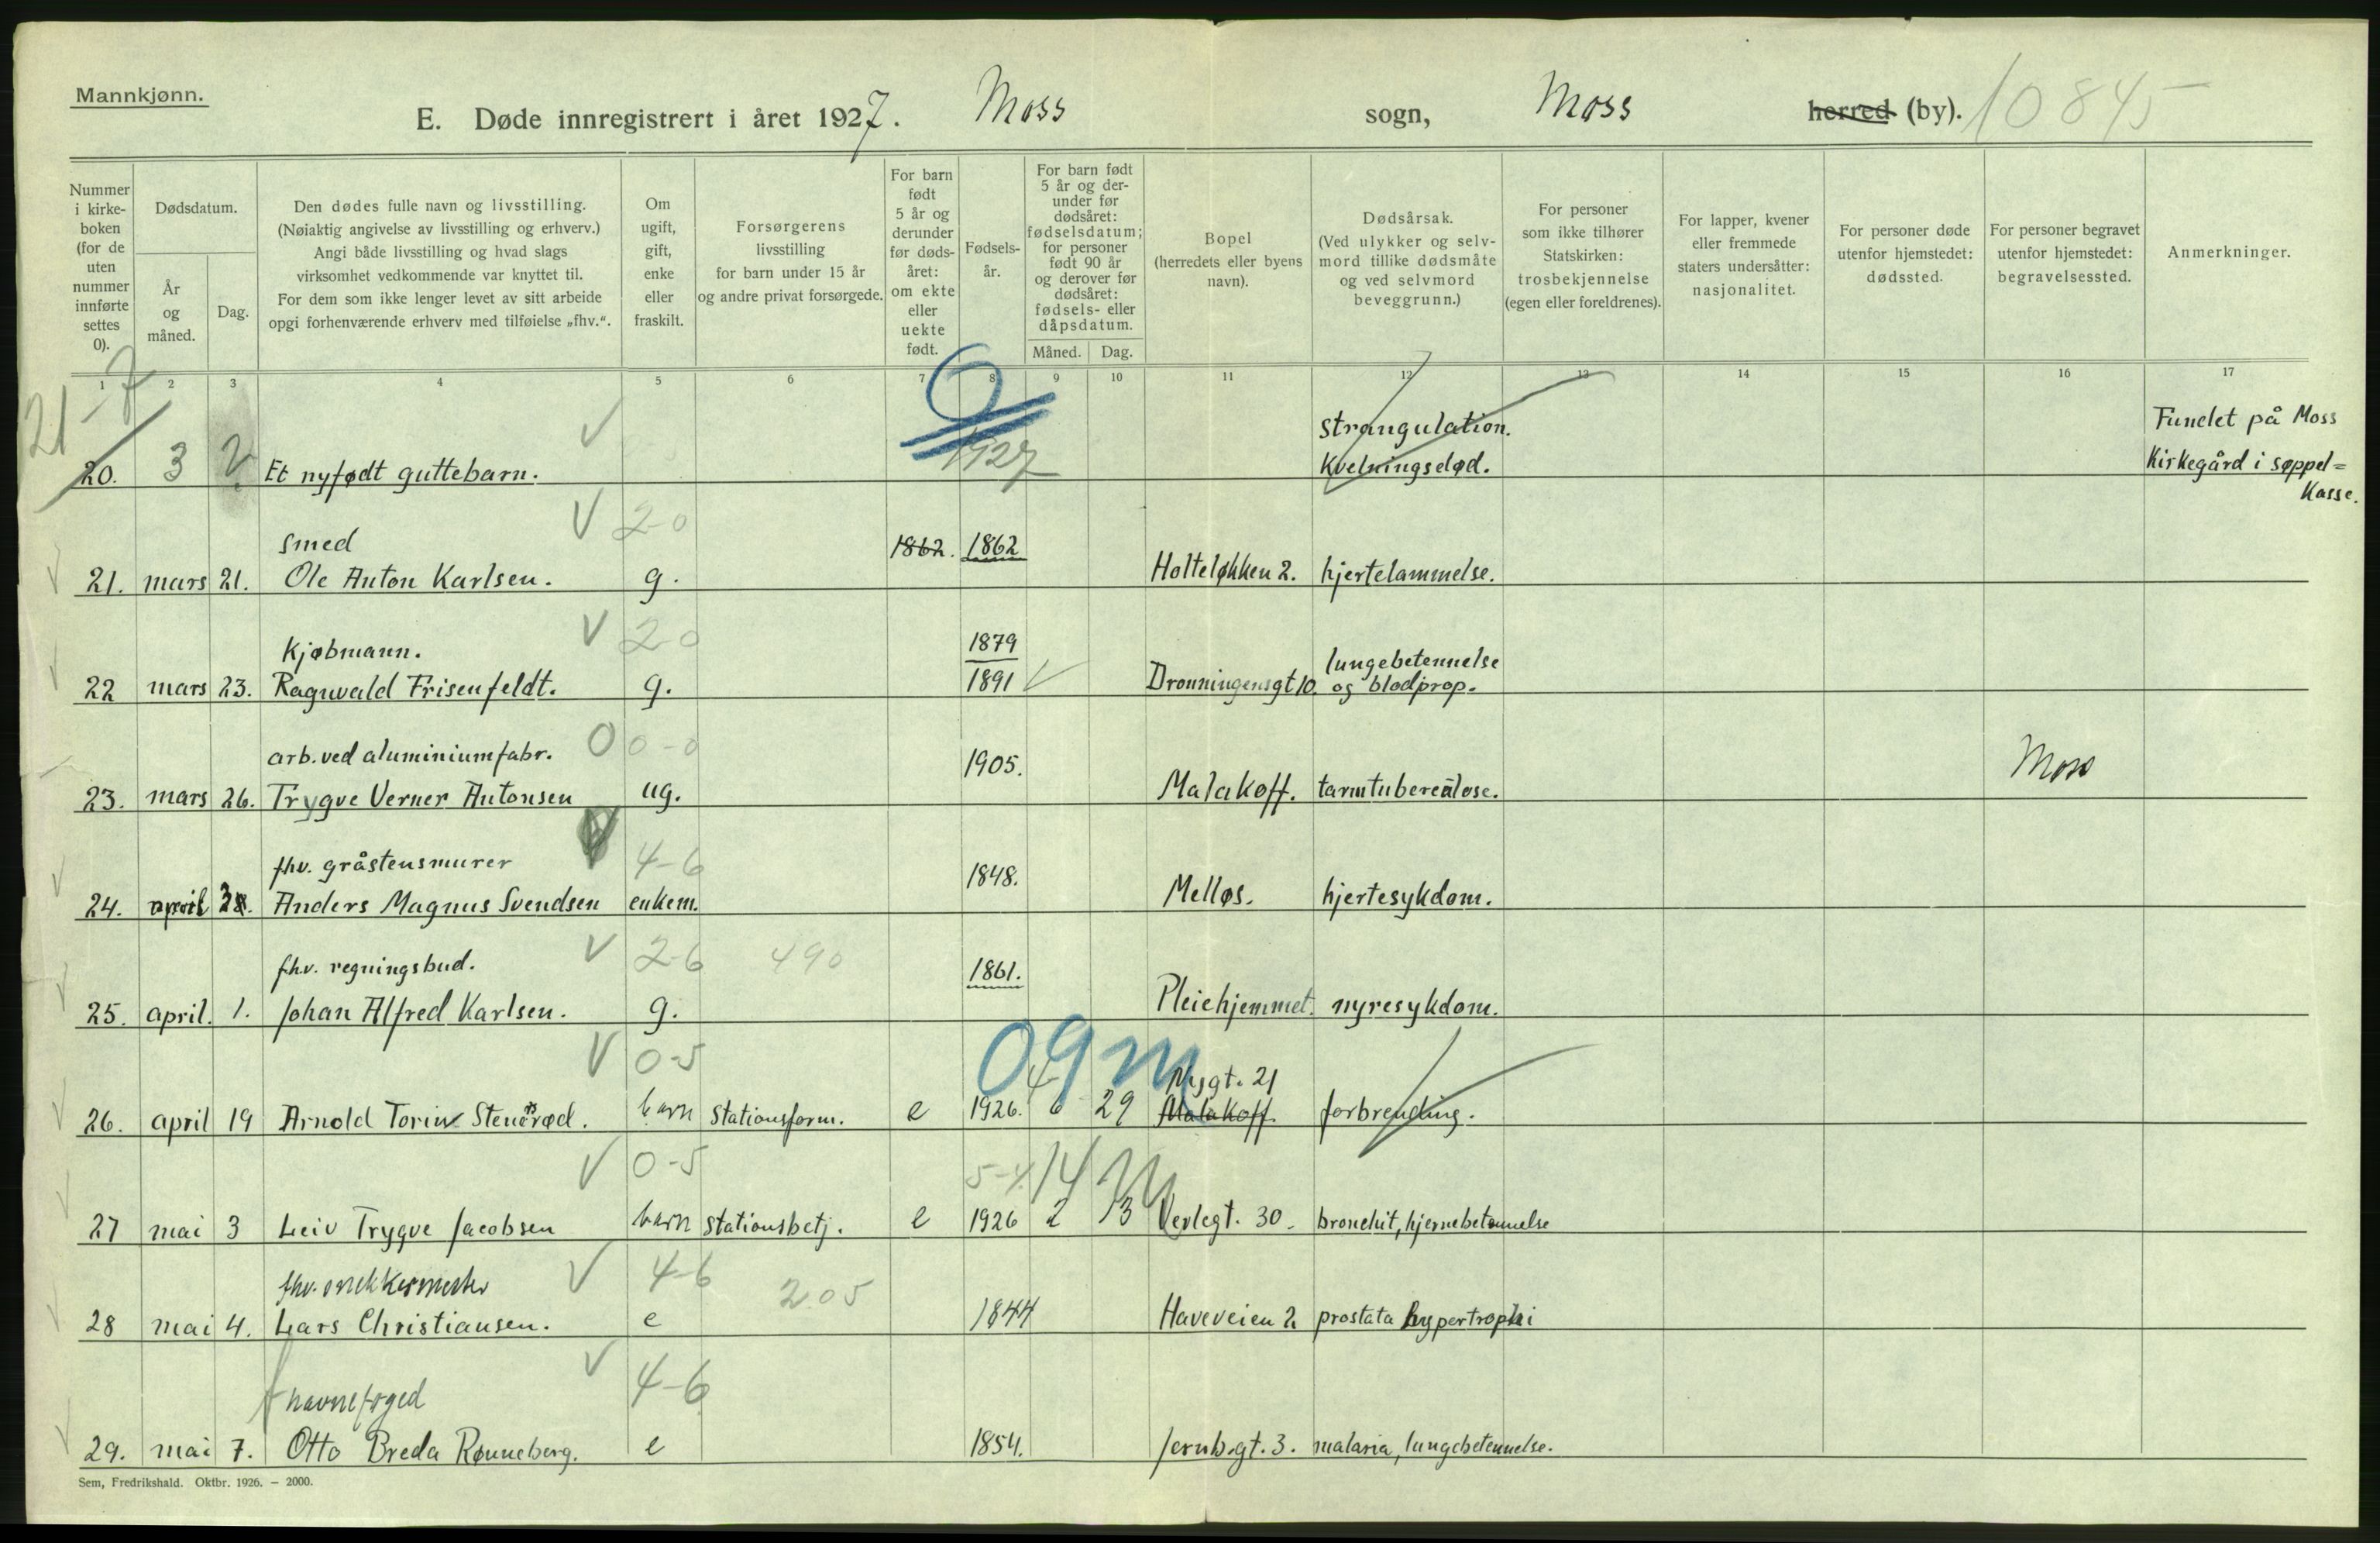 Mannkjønn.
E. Døde innregistrert i året 1927. Moss sogn, Moss herred (by). 10845
Nummer i kirke-boken (for de uten nummer innførte settes 0).
Dødsdatum.
År og måned.
Dag.
Den dødes fulle navn og livsstilling.
(Nøiaktig angivelse av livsstilling og erhverv.)
Angi både livsstilling og hvad slags
virksomhet vedkommende var knyttet til.
For dem som ikke lenger levet av sitt arbeide
opgi forhenværende erhverv med tilføielse „fhv.“.
Om ugift, gift, enke eller fraskilt.
Forsørgerens
livsstilling
for barn under 15 år
og andre privat forsørgede.
For barn født 5 år og derunder før døds-året: om ekte eller uekte født.
Fødsels-år.
For barn født 5 år og der-under før dødsåret: fødselsdatum; for personer født 90 år og derover før dødsåret: fødsels- eller dåpsdatum.
Måned. Dag.
Bopel
(herredets eller byens
navn).
Dødsårsak.
(Ved ulykker og selv-
mord tillike dødsmåte
og ved selvmord
beveggrunn.)
For personer
som ikke tilhører
Statskirken:
trosbekjennelse
(egen eller foreldrenes).
For lapper, kvener
eller fremmede
staters undersåtter:
nasjonalitet.
For personer døde
utenfor hjemstedet:
dødssted.
For personer begravet
utenfor hjemstedet:
begravelsessted.
Anmerkninger.
1 2 3 4 5 6 7 8 9 10 11 12 13 14 15 16 17
21-7
strangulation. Fundet på Moss
20. 3 Et nyfødt guttebarn. 1927 Kvelningsdød. Kirkegård i søppel=
Kasse.
Smed 2-0 1862. 1862
21. mars 21. Ole Anton Karlsen. g. Holteløkken 2. hjertelammelse.
Kjøbmann. 2-0 1879 lungebetennelse
22 mars 23. Ragnvald Frisenfeldt. g. 1891 Dronningensgt 10. og blodprop.
arb. ved aluminiumfabr. 0 0-0 1905. Moss
23. mars 26. Trygve Verner Antonsen ug. Malakoff. tarmtuberculose.
fhv. gråstensmurer 4-6 1848.
24. april Anders Magnus Svendsen enkem. Melløs. hjertesykdom.
fhv. regningsbud. 2-6 490 1861.
25. april. 1. Johan Alfred Karlsen. g. Pleiehjemmet. nyresykdom.
0-5 09m Nygt. 21
26. april 19 Arnold Torin Stenerød. barn Stationsform. e 1926. 6 29 Malakoff. forbrending.
0-5 5-4 14
27 mai 3 Leiv Trygve Jacobsen barn Stationsbetj. e 1926 2 13 Verlegt. 30. bronchit, hjernebetennelse
fhv. snekkermester 4-6 205
28 mai 4. Lars Christiansen. e 1844 Haveveien 2 prostata hypertrophi
havnefoged 4-6
29. mai 7. Otto Breda Rønneberg. e 1854. Jernb.gt. 3. malaria, lungebetennelse.
Sem, Fredrikshald. Oktbr. 1926. – 2000.